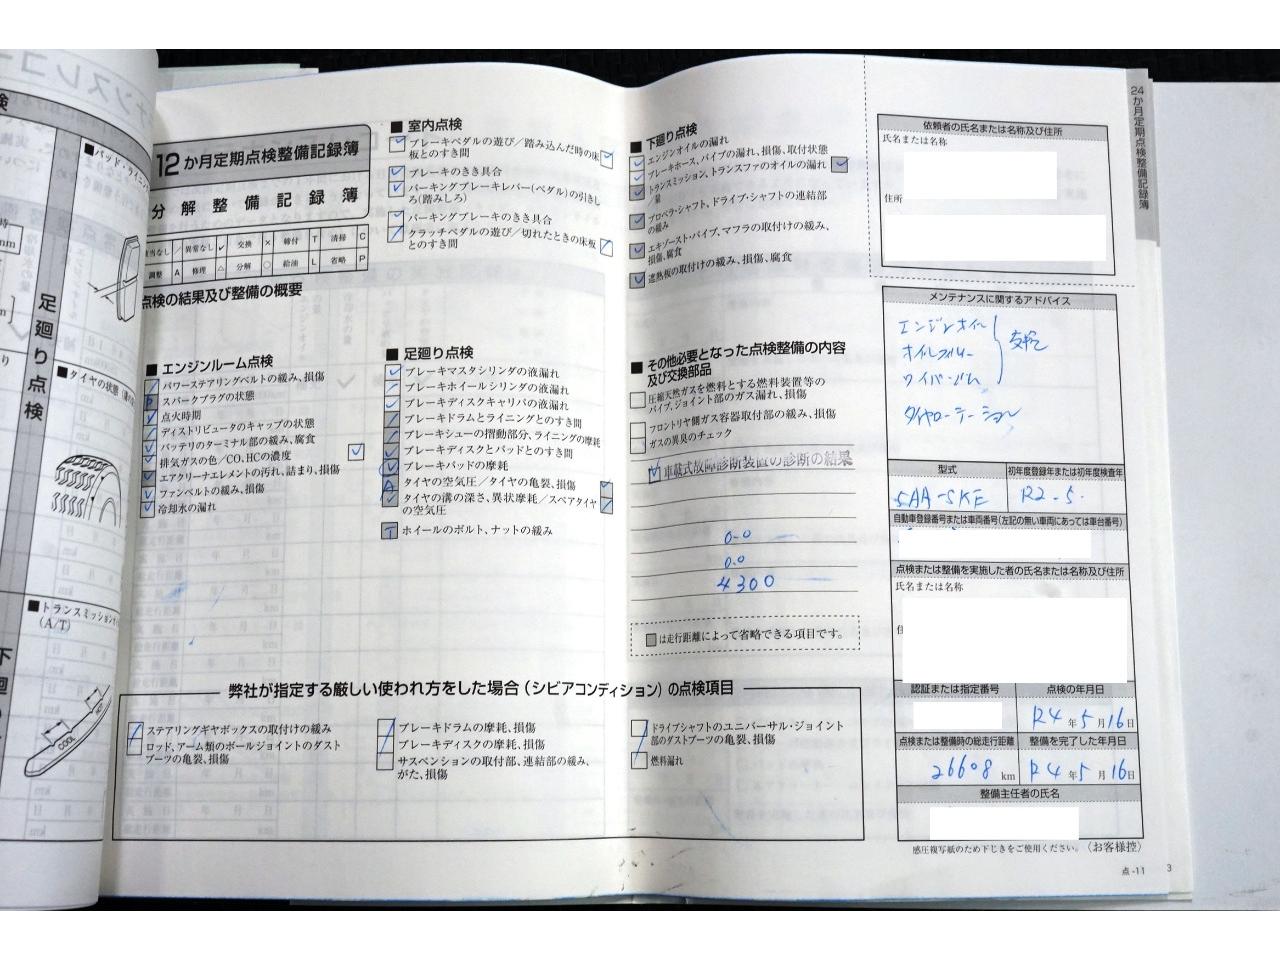 12か月定期点検整備記録簿
分解整備記録簿
該当なし / 異常なし ✓ 交換 × 締付 T 清掃 C
調整 A 修理 △ 分解 ○ 給油 L 省略 P
点検の結果及び整備の概要
■ エンジンルーム点検
パワーステアリングベルトの緩み、損傷
スパークプラグの状態
点火時期
ディストリビュータのキャップの状態
バッテリのターミナル部の緩み、腐食
排気ガスの色/CO、HCの濃度
エアクリーナエレメントの汚れ、詰まり、損傷
ファンベルトの緩み、損傷
冷却水の漏れ
■ 室内点検
ブレーキペダルの遊び/踏み込んだ時の床
板とのすき間
ブレーキのきき具合
パーキングブレーキレバー(ペダル)の引きし
ろ(踏みしろ)
パーキングブレーキのきき具合
クラッチペダルの遊び/切れたときの床板
とのすき間
■ 足廻り点検
ブレーキマスタシリンダの液漏れ
ブレーキホイールシリンダの液漏れ
ブレーキディスクキャリパの液漏れ
ブレーキドラムとライニングとのすき間
ブレーキシューの摺動部分、ライニングの摩耗
ブレーキディスクとパッドとのすき間
ブレーキパッドの摩耗
タイヤの空気圧/タイヤの亀裂、損傷
タイヤの溝の深さ、異状摩耗/スペアタイヤ
の空気圧
ホイールのボルト、ナットの緩み
■ 下廻り点検
エンジンオイルの漏れ
ブレーキホース、パイプの漏れ、損傷、取付状態
トランスミッション、トランスファのオイルの漏れ
量
プロペラ・シャフト、ドライブ・シャフトの連結部
の緩み
エキゾースト・パイプ、マフラの取付けの緩み、
損傷、腐食
遮熱板の取付けの緩み、損傷、腐食
■ その他必要となった点検整備の内容
及び交換部品
圧縮天然ガスを燃料とする燃料装置等の
パイプ、ジョイント部のガス漏れ、損傷
フロントリヤ側ガス容器取付部の緩み、損傷
ガスの異臭のチェック
車載式故障診断装置の診断の結果
0-0
0.0
4300
は走行距離によって省略できる項目です。
弊社が指定する厳しい使われ方をした場合(シビアコンディション)の点検項目
ステアリングギヤボックスの取付けの緩み
ロッド、アーム類のボールジョイントのダスト
ブーツの亀裂、損傷
ブレーキドラムの摩耗、損傷
ブレーキディスクの摩耗、損傷
サスペンションの取付部、連結部の緩み、
がた、損傷
ドライブシャフトのユニバーサル・ジョイント
部のダストブーツの亀裂、損傷
燃料漏れ
依頼者の氏名または名称及び住所
氏名または名称
住所
メンテナンスに関するアドバイス
エンジンオイル
オイルフィルター
ワイパーゴム
交換
タイヤローテーション
型式
初年度登録年または初年度検査年
5AA-SKE
R2-5.
自動車登録番号または車両番号(左記の無い車両にあっては車台番号)
点検または整備を実施した者の氏名または名称及び住所
氏名または名称
認証または指定番号
点検の年月日
R4年5月16日
点検または整備時の総走行距離
整備を完了した年月日
26608 km
R4年5月16日
整備主任者の氏名
感圧複写紙のため下じきをご使用ください。(お客様控)
点-11
3
24か月定期点検整備記録簿
足廻り点検
■タイヤの状態
■トランスミッション
(A/T)
COOL
HOT